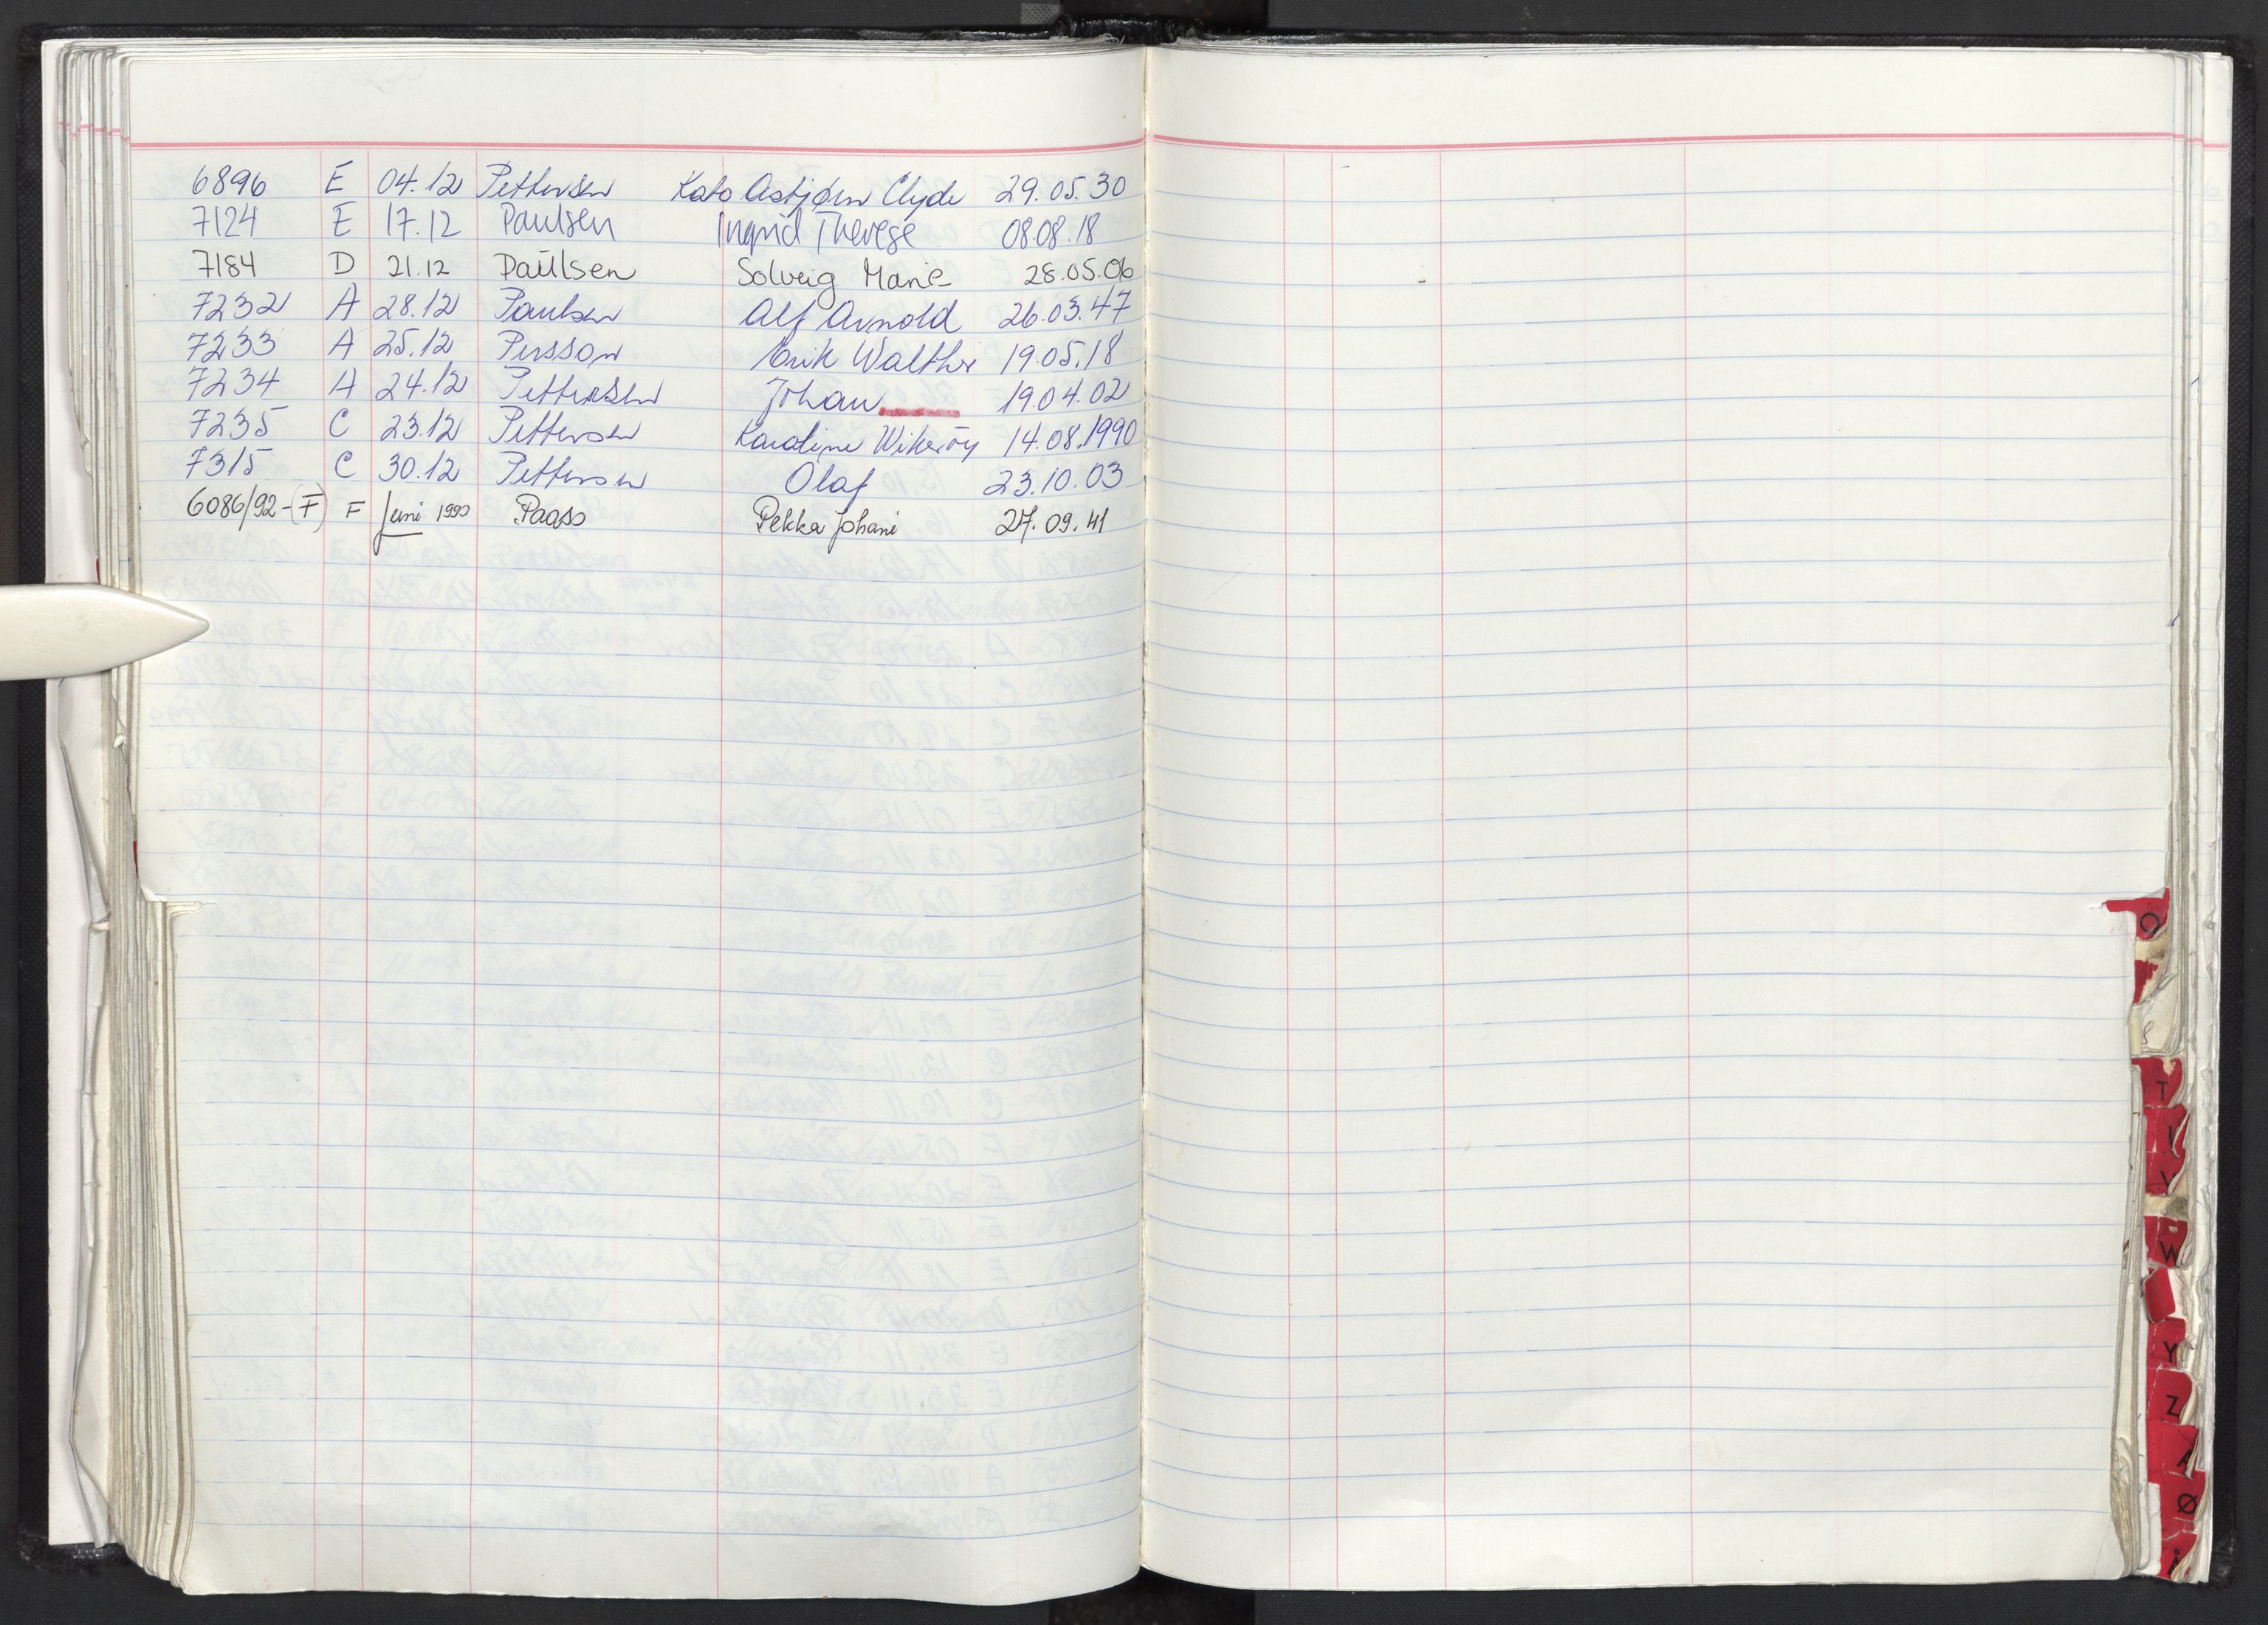 6896 E 04.12 Pettersen Kato Astjørn Clyde 29.05.30
7124 E 17.12 Paulsen Ingrid Therese 08.08.18
7184 D 21.12 Paulsen Solveig Marie 28.05.06
7232 A 28.12 Paulsen Alf Arnold 26.03.47
7233 A 25.12 Persson Erik Walther 19.05.18
7234 A 24.12 Pettersen Johan 19.04.02
7235 C 23.12 Pettersen Karoline 14.08.1990
7315 C 30.12 Pettersen Olaf 23.10.03
6086/92-(F) F Juni 1990 Paaso Pekka Johani 27.09.41
T
V
W
Y
Z
Ø